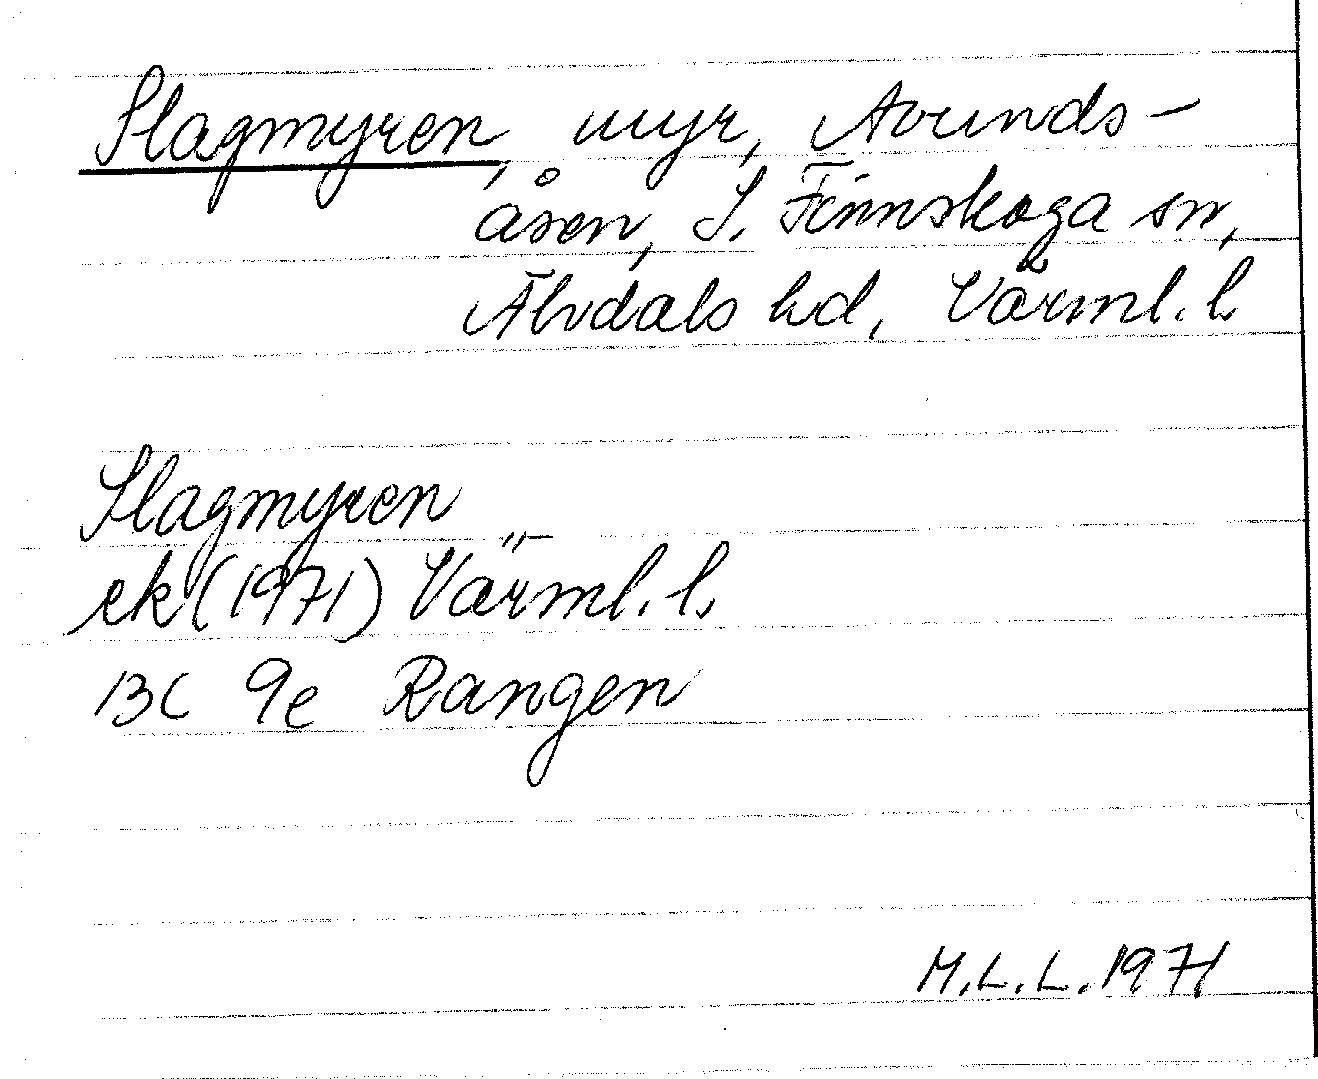 Slagmyren, myr, Avunds-
åsen, S. Finnskoga sn,
Älvdals hd, Värml. l
Slagmyren
ek (1971) Värml. l.
13C 9e Rangen
M.L.L. 1971